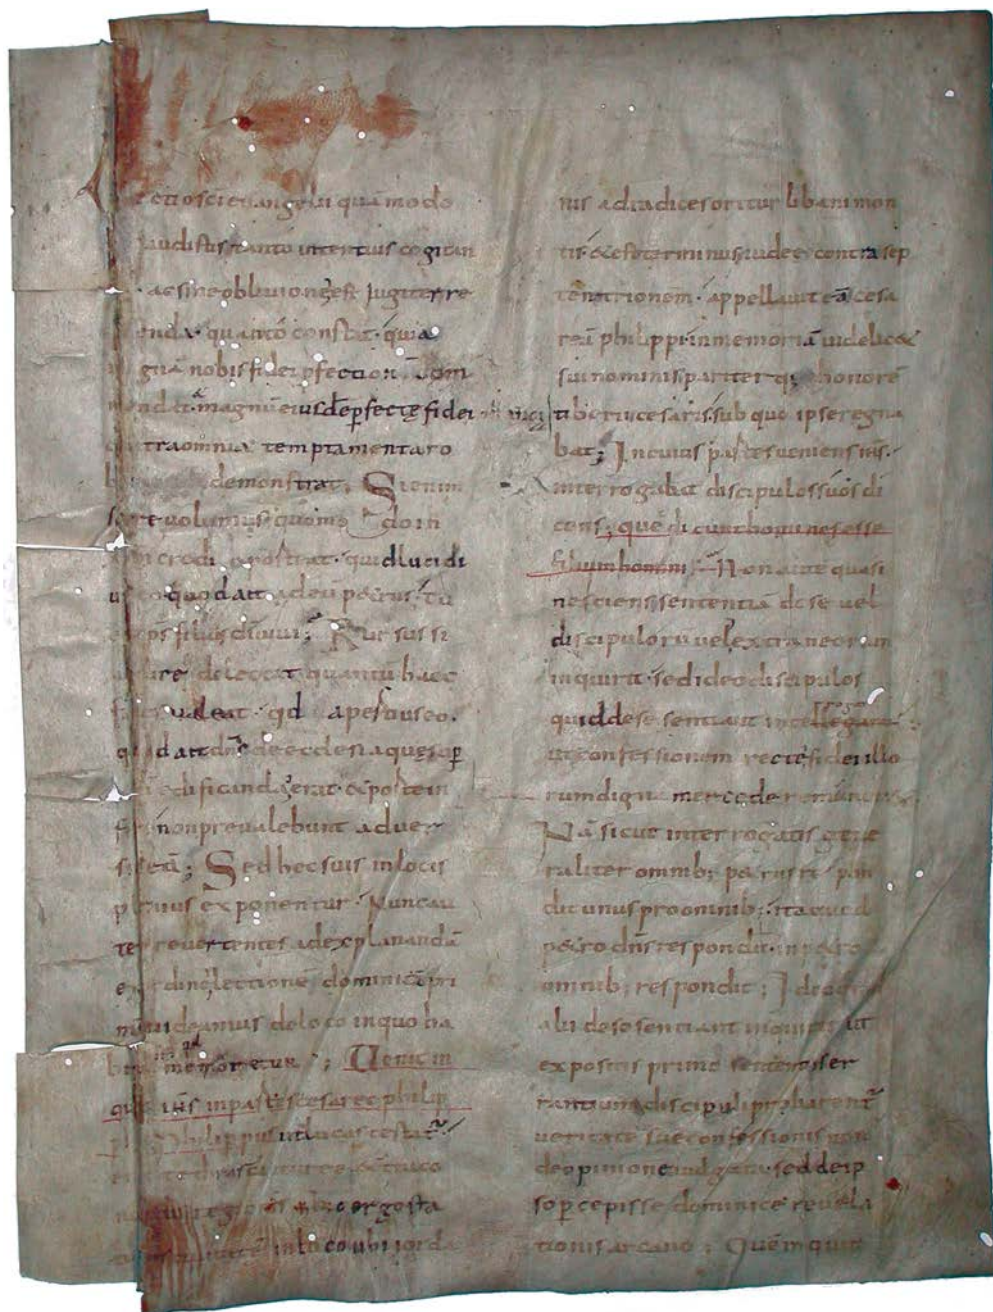 lectio sci euangelii quā modo
audistis tanto intentius cogitan
ac sine obliuione ē iugiter re
quanto constat quia
nobis fidei pfectionē com
mendat magnū eiusdē perfectę fidei
contra omnia temptamenta ro
demonstrat; Si enim
scire uolumus quomodo in
credi oporteat quid lucidi
us eo quod ait ad eū petrus tu
es xps filius di uiui; Rursus si
audire delectat quantū haec
ualeat qd aperitius eo
quod ait dns de ecclesia quę sup
ędificanda erat & porte in
feri non preualebunt aduer
sus eā; Sed hęc suis in locis
plenius exponentur Nunc au
tē reuertentes ad explanandā
ex ordine lectionē dominicā pri
mū uideamus de loco in quo ha
memoretur; Uenit
ihs in partes cesareę philip
pi Philippus ut lucas testat̄
tetrarcha itureę & traco
nitidis regionis
in loco ubi iorda
nis ad radices oritur libani mon
tis & est terminus iudeę contra sep
tentrionem appellauit eā cesa
reā philippi in memoriā uidelic&
sui nominis pariter honorē
tiberii cesaris sub quo ipse regna
bat; In cuius partes ueniens ihs
interrogabat discipulos suos di
cens; quē dicunt homines esse
filium hominis; Non autē quasi
nesciens sententiā de se uel
discipulorū uel extraneorum
inquirit sed ideo discipulos
quid de se sentiant interrogat
ut confessionem rectę fidei illo
rum digna mercede
Nā sicut interrogatis gene
raliter omnib; petrus respon
dit unus pro omnib; ita quod
petro dns respondit in petro
omnib; respondit; Ideo
alii de se sentiant inquirit ut
expositis primo sententiis er
rantium discipuli probarent̄
ueritatē suę confessionis non
de opinione uulgata sed de ip
so pcepisse dominicę reuela
tionis arcano; Quē inquit